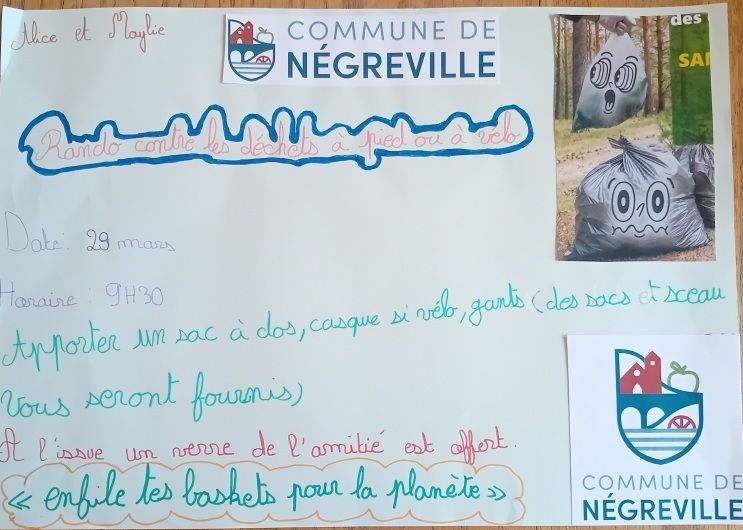 Alice et Maylie
COMMUNE DE
NÉGREVILLE
des
SA
Rando contre les déchets à pied ou à vélo
Date: 29 mars
Horaire : 9H30
Apporter un sac à dos, casque si vélo, gants (des sacs et sceau
Vous seront fournis)
A l'issue un verre de l'amitié est offert.
« enfile tes baskets pour la planète »
COMMUNE DE
NÉGREVILLE